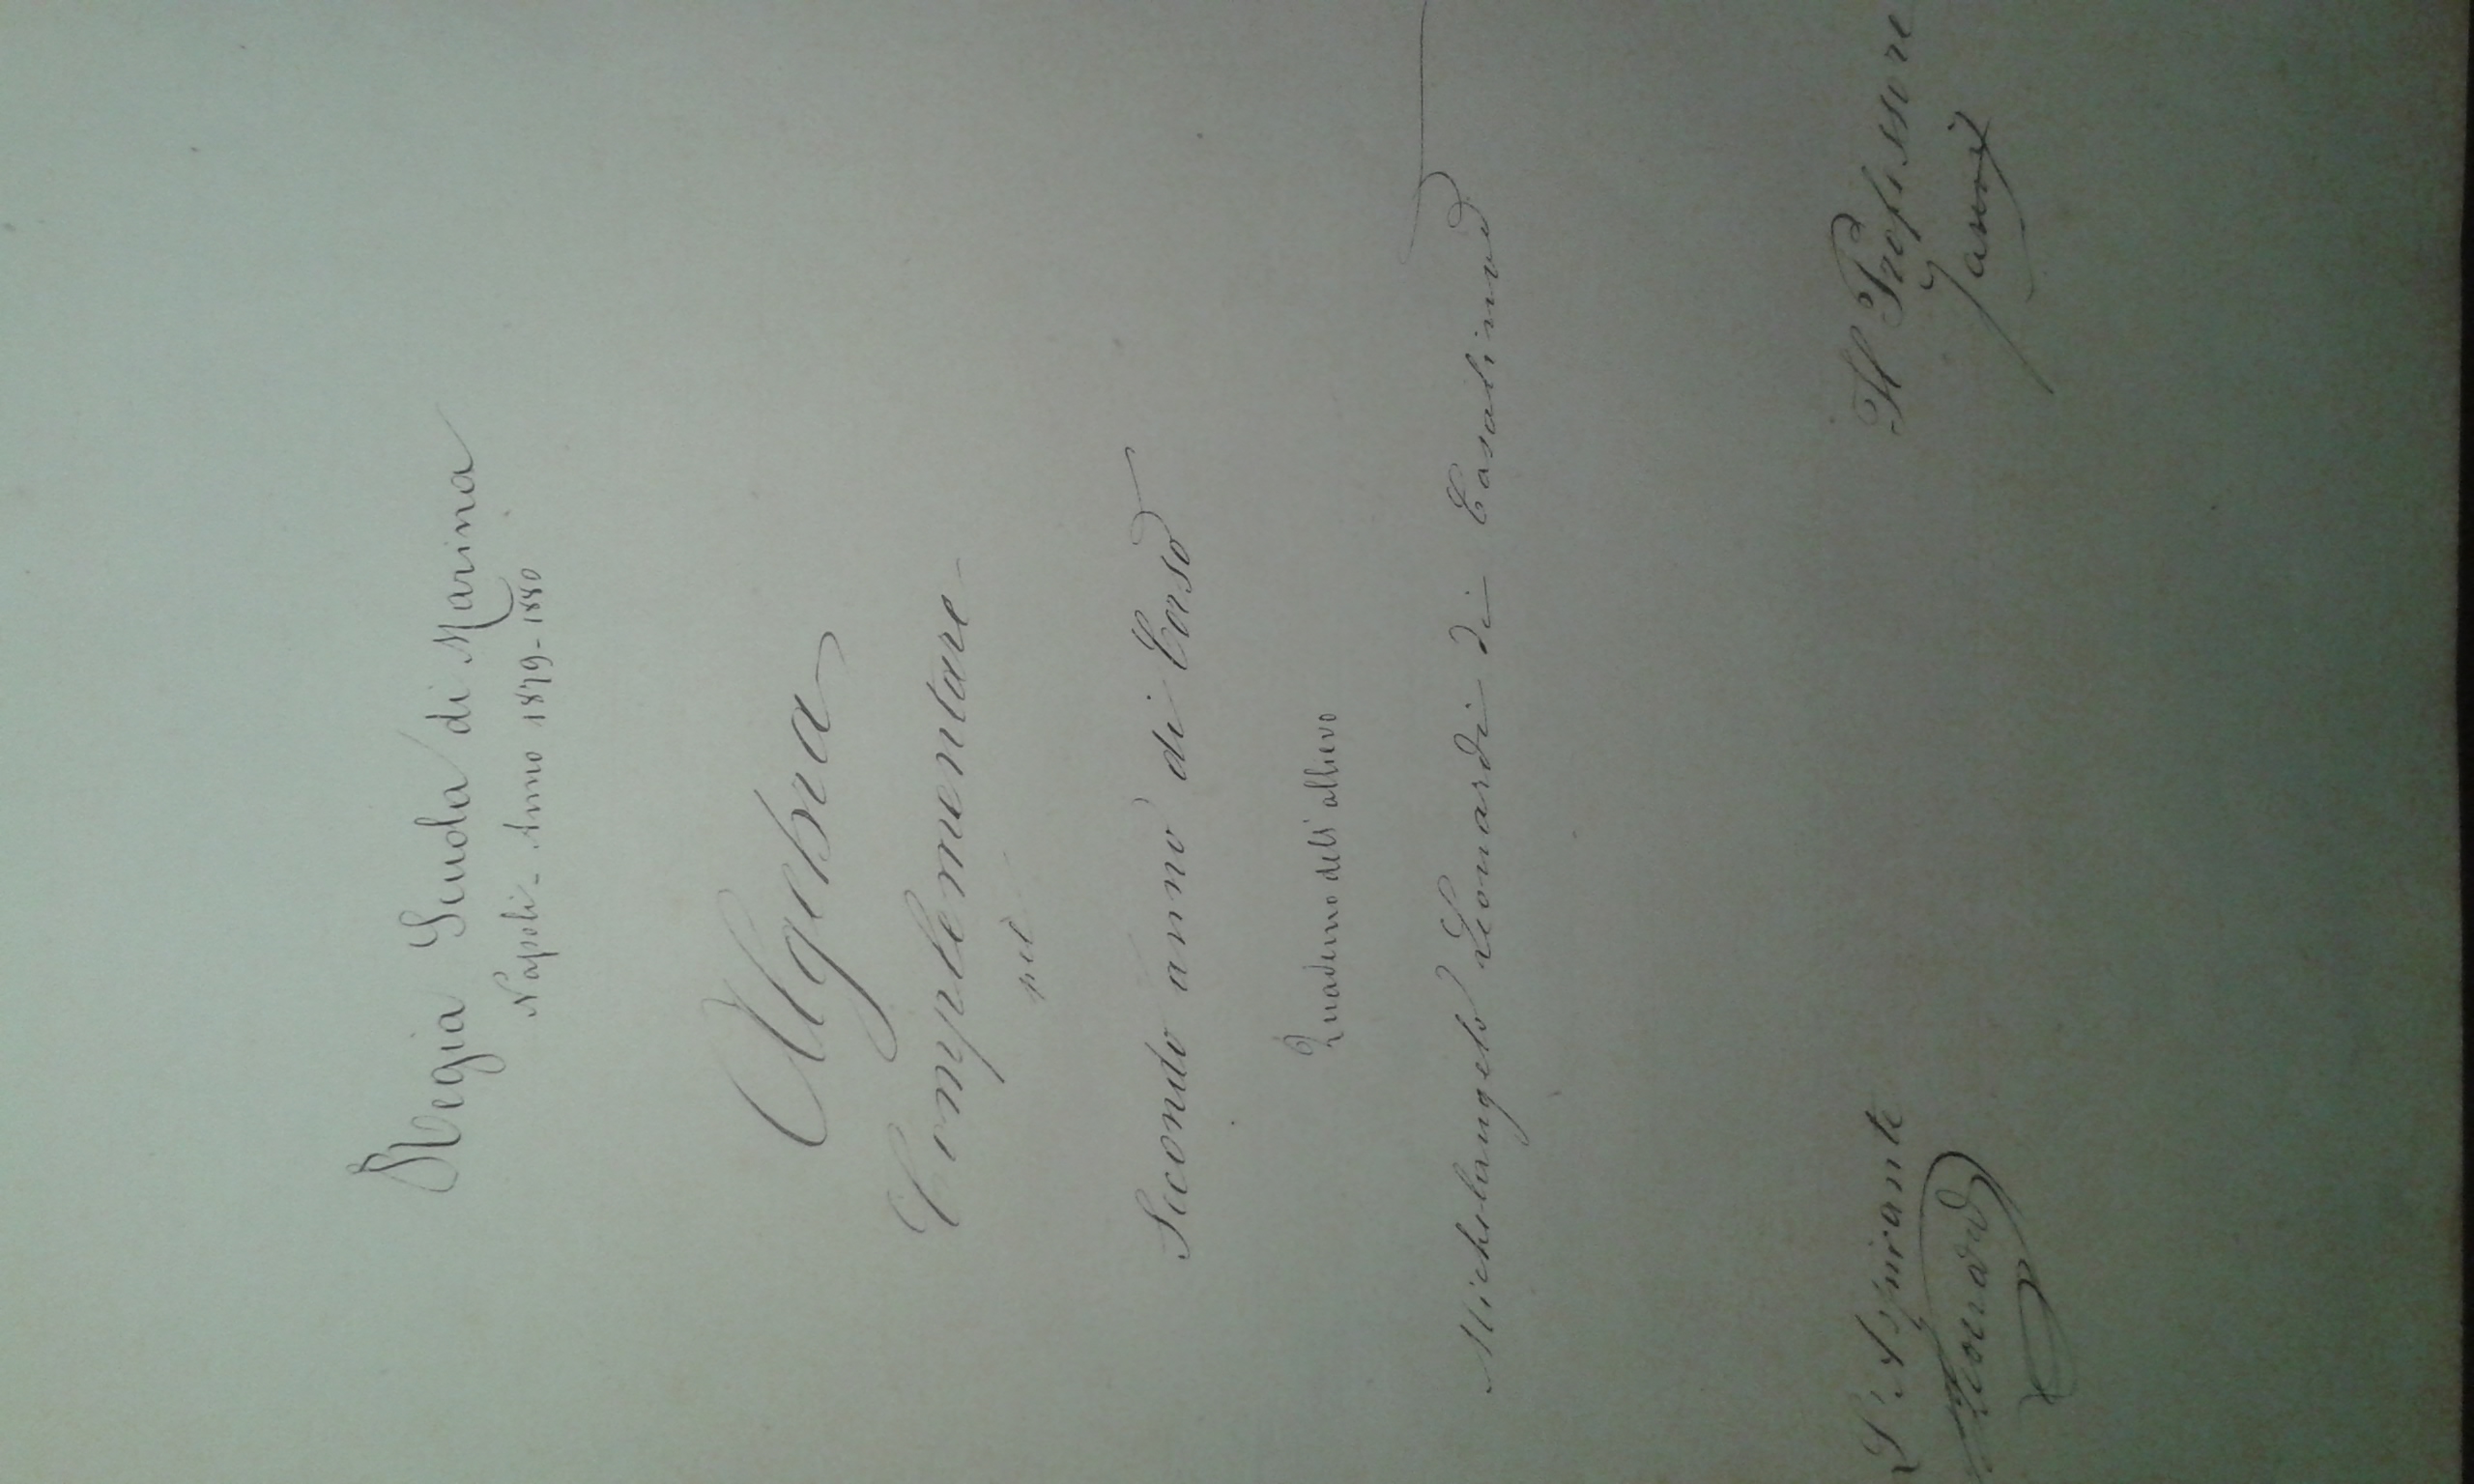 Regia Scuola di Marina
Napoli - Anno 1879-1880
Algebra
Complementare
pel
Secondo anno di Corso
Quaderno dell' allievo
Michelangelo Leonardi di Casalino
L'Aspirante
Leonardi
Il Professore